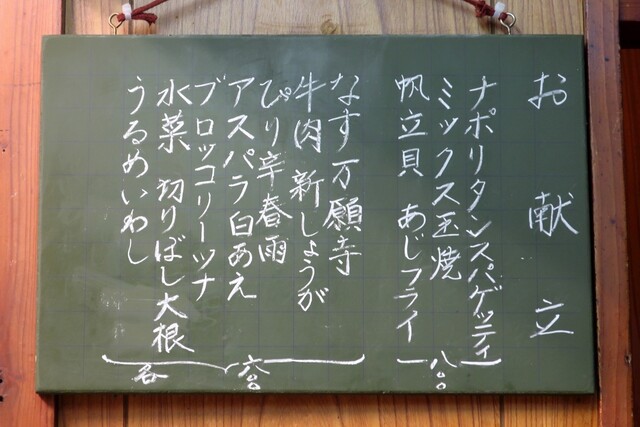 お献立
ナポリタンスパゲッティ
ミックス玉焼
帆立貝 あじフライ
八〇〇
なす万願寺
牛肉 新しょうが
ぴり辛春雨
アスパラ白あえ
ブロッコリーツナ
水菜 切りぼし大根
うるめいわし
各 六〇〇